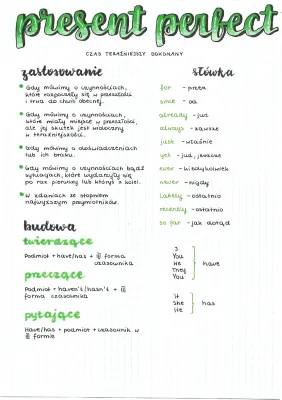 present perfect
CZAS TERAŹNIEJSZY DOKONANY
zastosowanie
Gdy mówimy o czynnościach,
które rozpoczęły się w przeszłości
i trwa do chwili obecnej.
Gdy mówimy o czynnościach,
które miały miejsce w przeszłości,
ale jej skutek jest widoczny
w teraźniejszości.
Gdy mówimy o doświadczeniach
lub ich braku.
Gdy mówimy o czynnościach bądź
sytuacjach, które wydarzyły się
po raz pierwszy lub któryś z kolei.
W zdaniach ze stopniem
najwyższym przymiotników.
słówka
for - przez
since - od
already - już
always - zawsze
just - właśnie
yet - już, jeszcze
ever - kiedykolwiek
never - nigdy
lately - ostatnio
recently - ostatnio
so far - jak dotąd
budowa
twierdzące
Podmiot + have/has + III forma
czasownika
przeczące
Podmiot + haven't/hasn't + III
forma czasownika
pytające
Have/has + podmiot + czasownik w
III formie
I
You
We
They
You
have
It
She
He
has